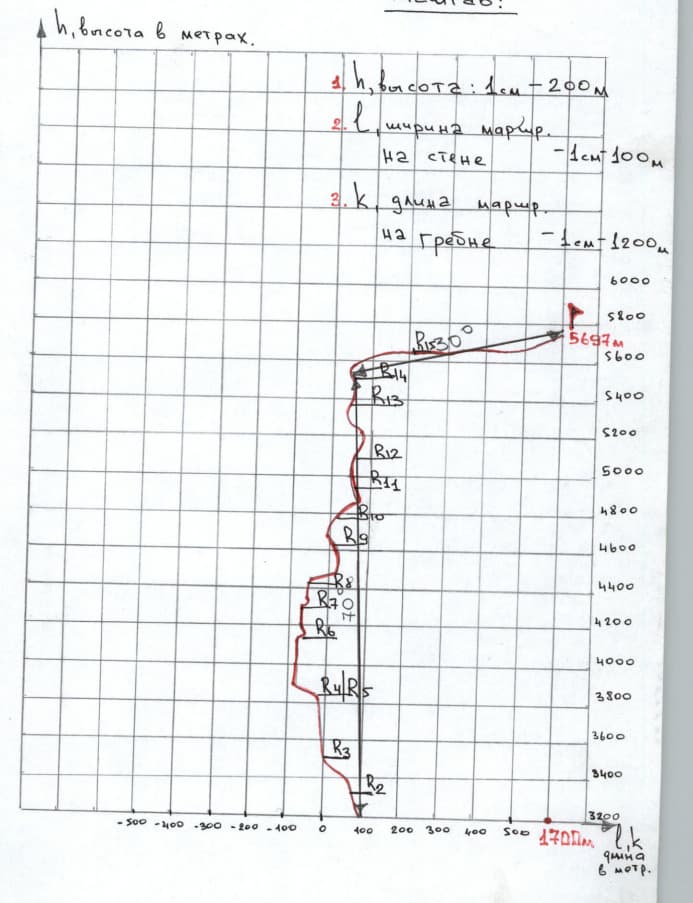 h, высота в метрах.
1. h, высота: 1см - 200м
2. l, ширина маршр.
на стене - 1см - 100м
3. k, длина маршр.
на гребне - 1см - 1200м
6000
5800
5697м
R15 30°
5600
R14
5400
R13
5200
R12
5000
R11
4800
R10
R9
4600
R8
4400
R7
70°
R6
4200
4000
R4|R5
3800
3600
R3
3400
R2
3200
-500 -400 -300 -200 -100 0 100 200 300 400 500 1700м
l, k
длина
в метр.